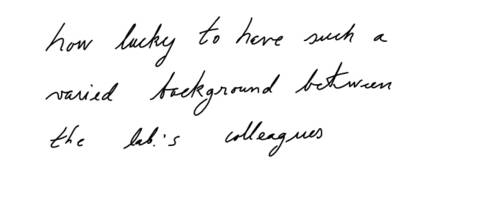 how lucky to have such a
varied background between
the lab.'s colleagues